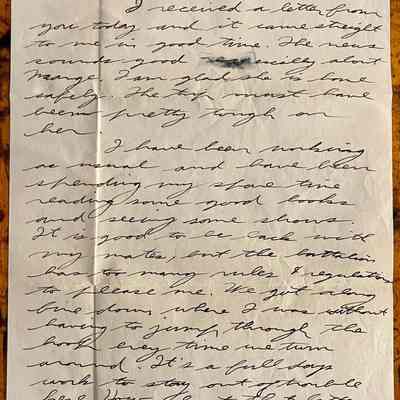 I received a letter from
you today and it came straight
to me in good time. The news
sounds good especially about
Marge. I am glad she is home
safely. The trip must have
been pretty tough on
her.
I have been working
as usual and have been
spending my spare time
reading some good books
and seeing some shows.
It is good to be back with
my mates, but the battalion
has too many rules & regulations
to please me. We got along
fine down where I was without
having to jump through the
hoop every time we turn
around. It's a full days
work to stay out of trouble